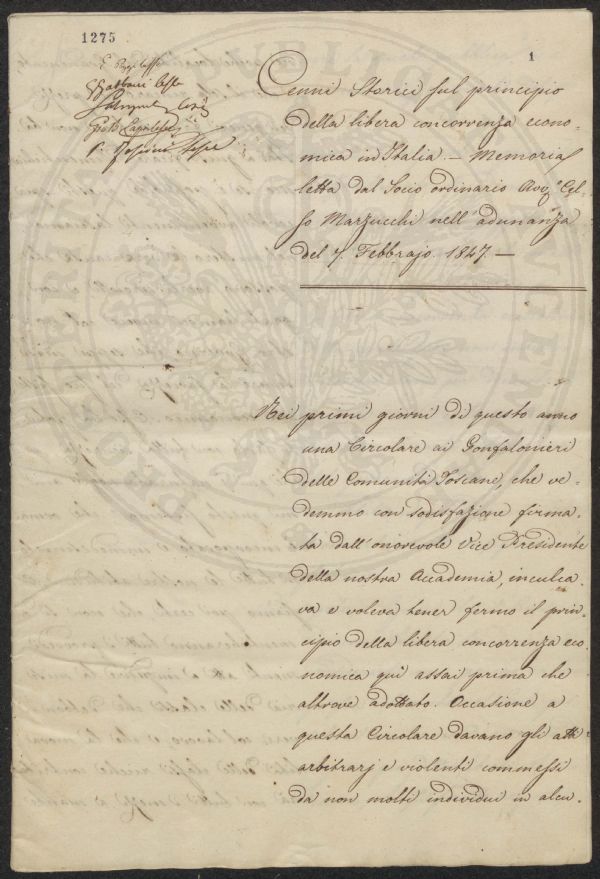 1275
1
Cenni Storici sul principio
della libera concorrenza econo-
mica in Italia. — Memoria
letta dal Socio ordinario Avv. Cel-
so Marzucchi nell'adunanza
del 7. Febbrajo. 1847. —
Nei primi giorni di questo anno
una Circolare ai Gonfalonieri
delle Comunità Toscane, che ve-
demmo con sodisfazione firma-
ta dall'onorevole Vice Presidente
della nostra Accademia, inculca
va e voleva tener fermo il prin-
cipio della libera concorrenza eco
nomica quì assai prima che
altrove adottato. Occasione a
questa Circolare davano gli atti
arbitrarj e violenti commessi
da non molti individui in alcu-